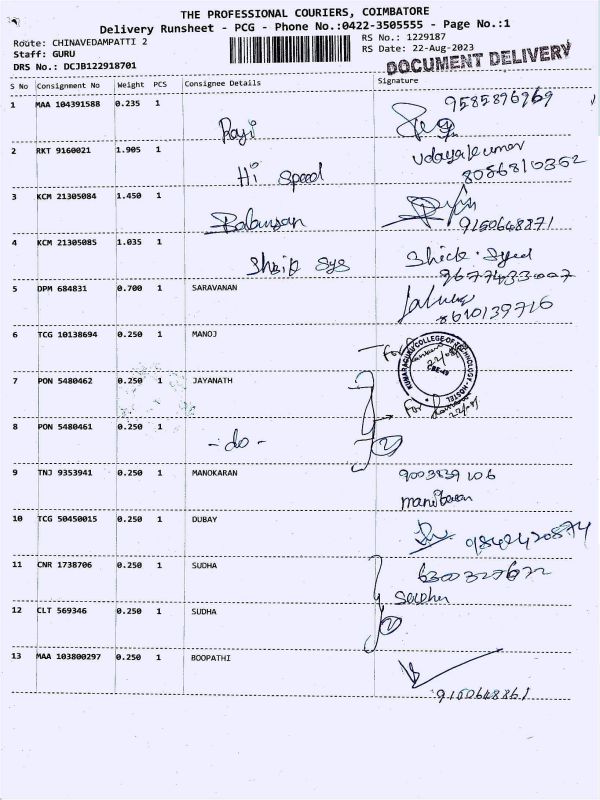 THE PROFESSIONAL COURIERS, COIMBATORE
Delivery Runsheet - PCG - Phone No.:0422-3505555 - Page No.:1
Route: CHINAVEDAMPATTI 2
RS No.: 1229187
Staff: GURU
RS Date: 22-Aug-2023
DRS No.: DCJB122918701
DOCUMENT DELIVERY
S No Consignment No Weight PCS Consignee Details Signature
1 MAA 104391588 0.235 1 9585896969
Raji
2 RKT 9160021 1.905 1 Udayakumar
Hi Speed 8056810352
3 KCM 21305084 1.450 1
9150648871
4 KCM 21305085 1.035 1
Shaik Sys 9677433007
5 DPM 684831 0.700 1 SARAVANAN
8610139716
6 TCG 10138694 0.250 1 MANOJ
For
KUMARAGURU COLLEGE OF TECHNOLOGY - HOSTEL
CBE-49
7 PON 5480462 0.250 1 JAYANATH
For
8 PON 5480461 0.250 1
- do - 2
9 TNJ 9353941 0.250 1 MANOKARAN 9003839106
10 TCG 50450015 0.250 1 DUBAY
9842420874
11 CNR 1738706 0.250 1 SUDHA
12 CLT 569346 0.250 1 SUDHA
2
13 MAA 103800297 0.250 1 BOOPATHI
9150648861